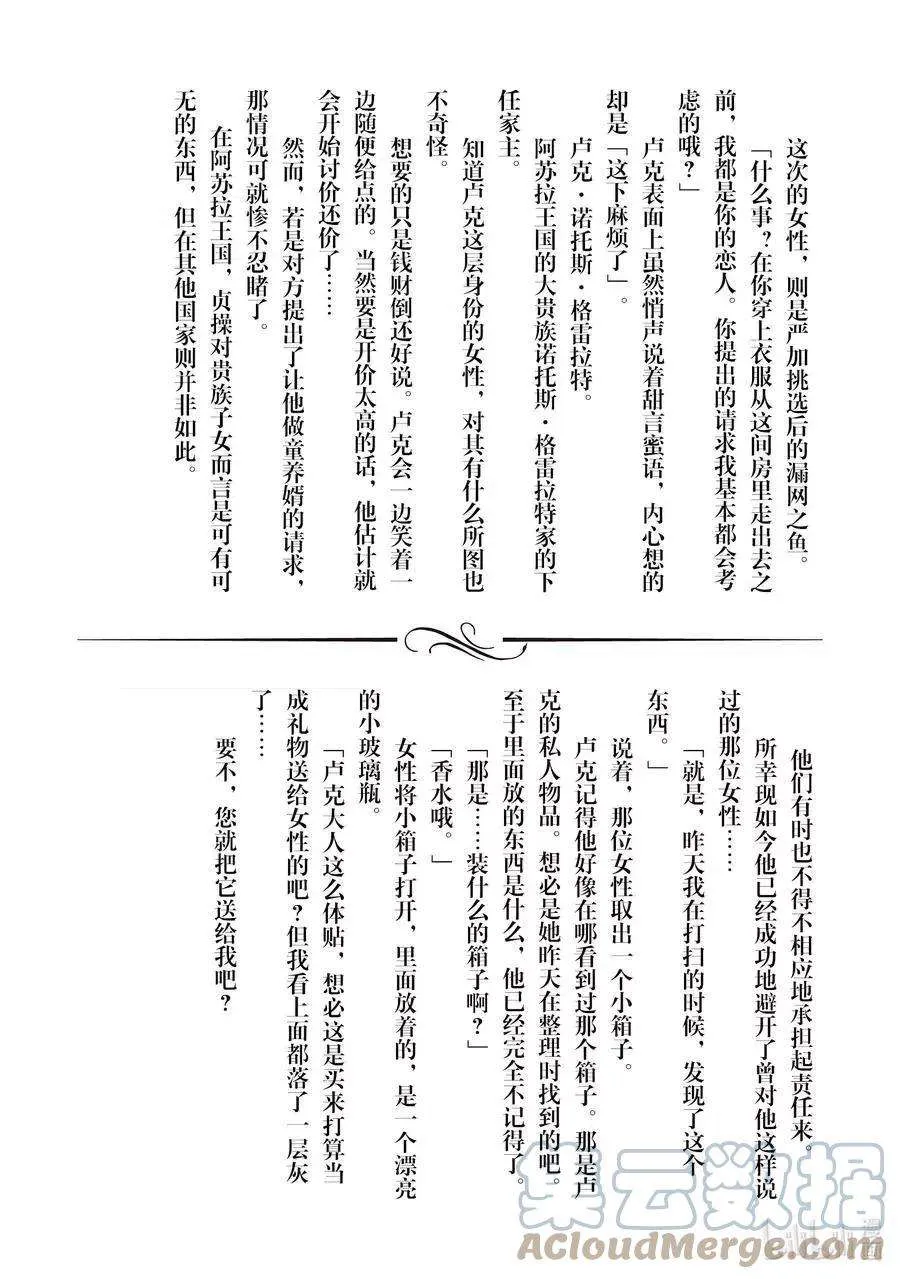 这次的女性，则是严加挑选后的漏网之鱼。
「什么事？在你穿上衣服从这间房里走出去之
前，我都是你的恋人。你提出的请求我基本都会考
虑的哦？」
卢克表面上虽然悄声说着甜言蜜语，内心想的
却是「这下麻烦了」。
卢克·诺托斯·格雷拉特。
阿苏拉王国的大贵族诺托斯·格雷拉特家的下
任家主。
知道卢克这层身份的女性，对其有什么所图也
不奇怪。
想要的只是钱财倒还好说。卢克会一边笑着一
边随便给点的。当然要是开价太高的话，他估计就
会开始讨价还价了……
然而，若是对方提出了让他做童养婿的请求，
那情况可就惨不忍睹了。
在阿苏拉王国，贞操对贵族子女而言是可有可
无的东西，但在其他国家则并非如此。
他们有时也不得不相应地承担起责任来。
所幸现如今他已经成功地避开了曾对他这样说
过的那位女性……
「就是，昨天我在打扫的时候，发现了这个
东西。」
说着，那位女性取出一个小箱子。
卢克记得他好像在哪看到过那个箱子。那是卢
克的私人物品。想必是她昨天在整理时找到的吧。
至于里面放的东西是什么，他已经完全不记得了。
「那是……装什么的箱子啊？」
「香水哦。」
女性将小箱子打开，里面放着的，是一个漂亮
的小玻璃瓶。
「卢克大人这么体贴，想必这是买来打算当
成礼物送给女性的吧？但我看上面都落了一层灰
了……
要不，您就把它送给我吧？
集云数据
ACloudMerge.com
漫画